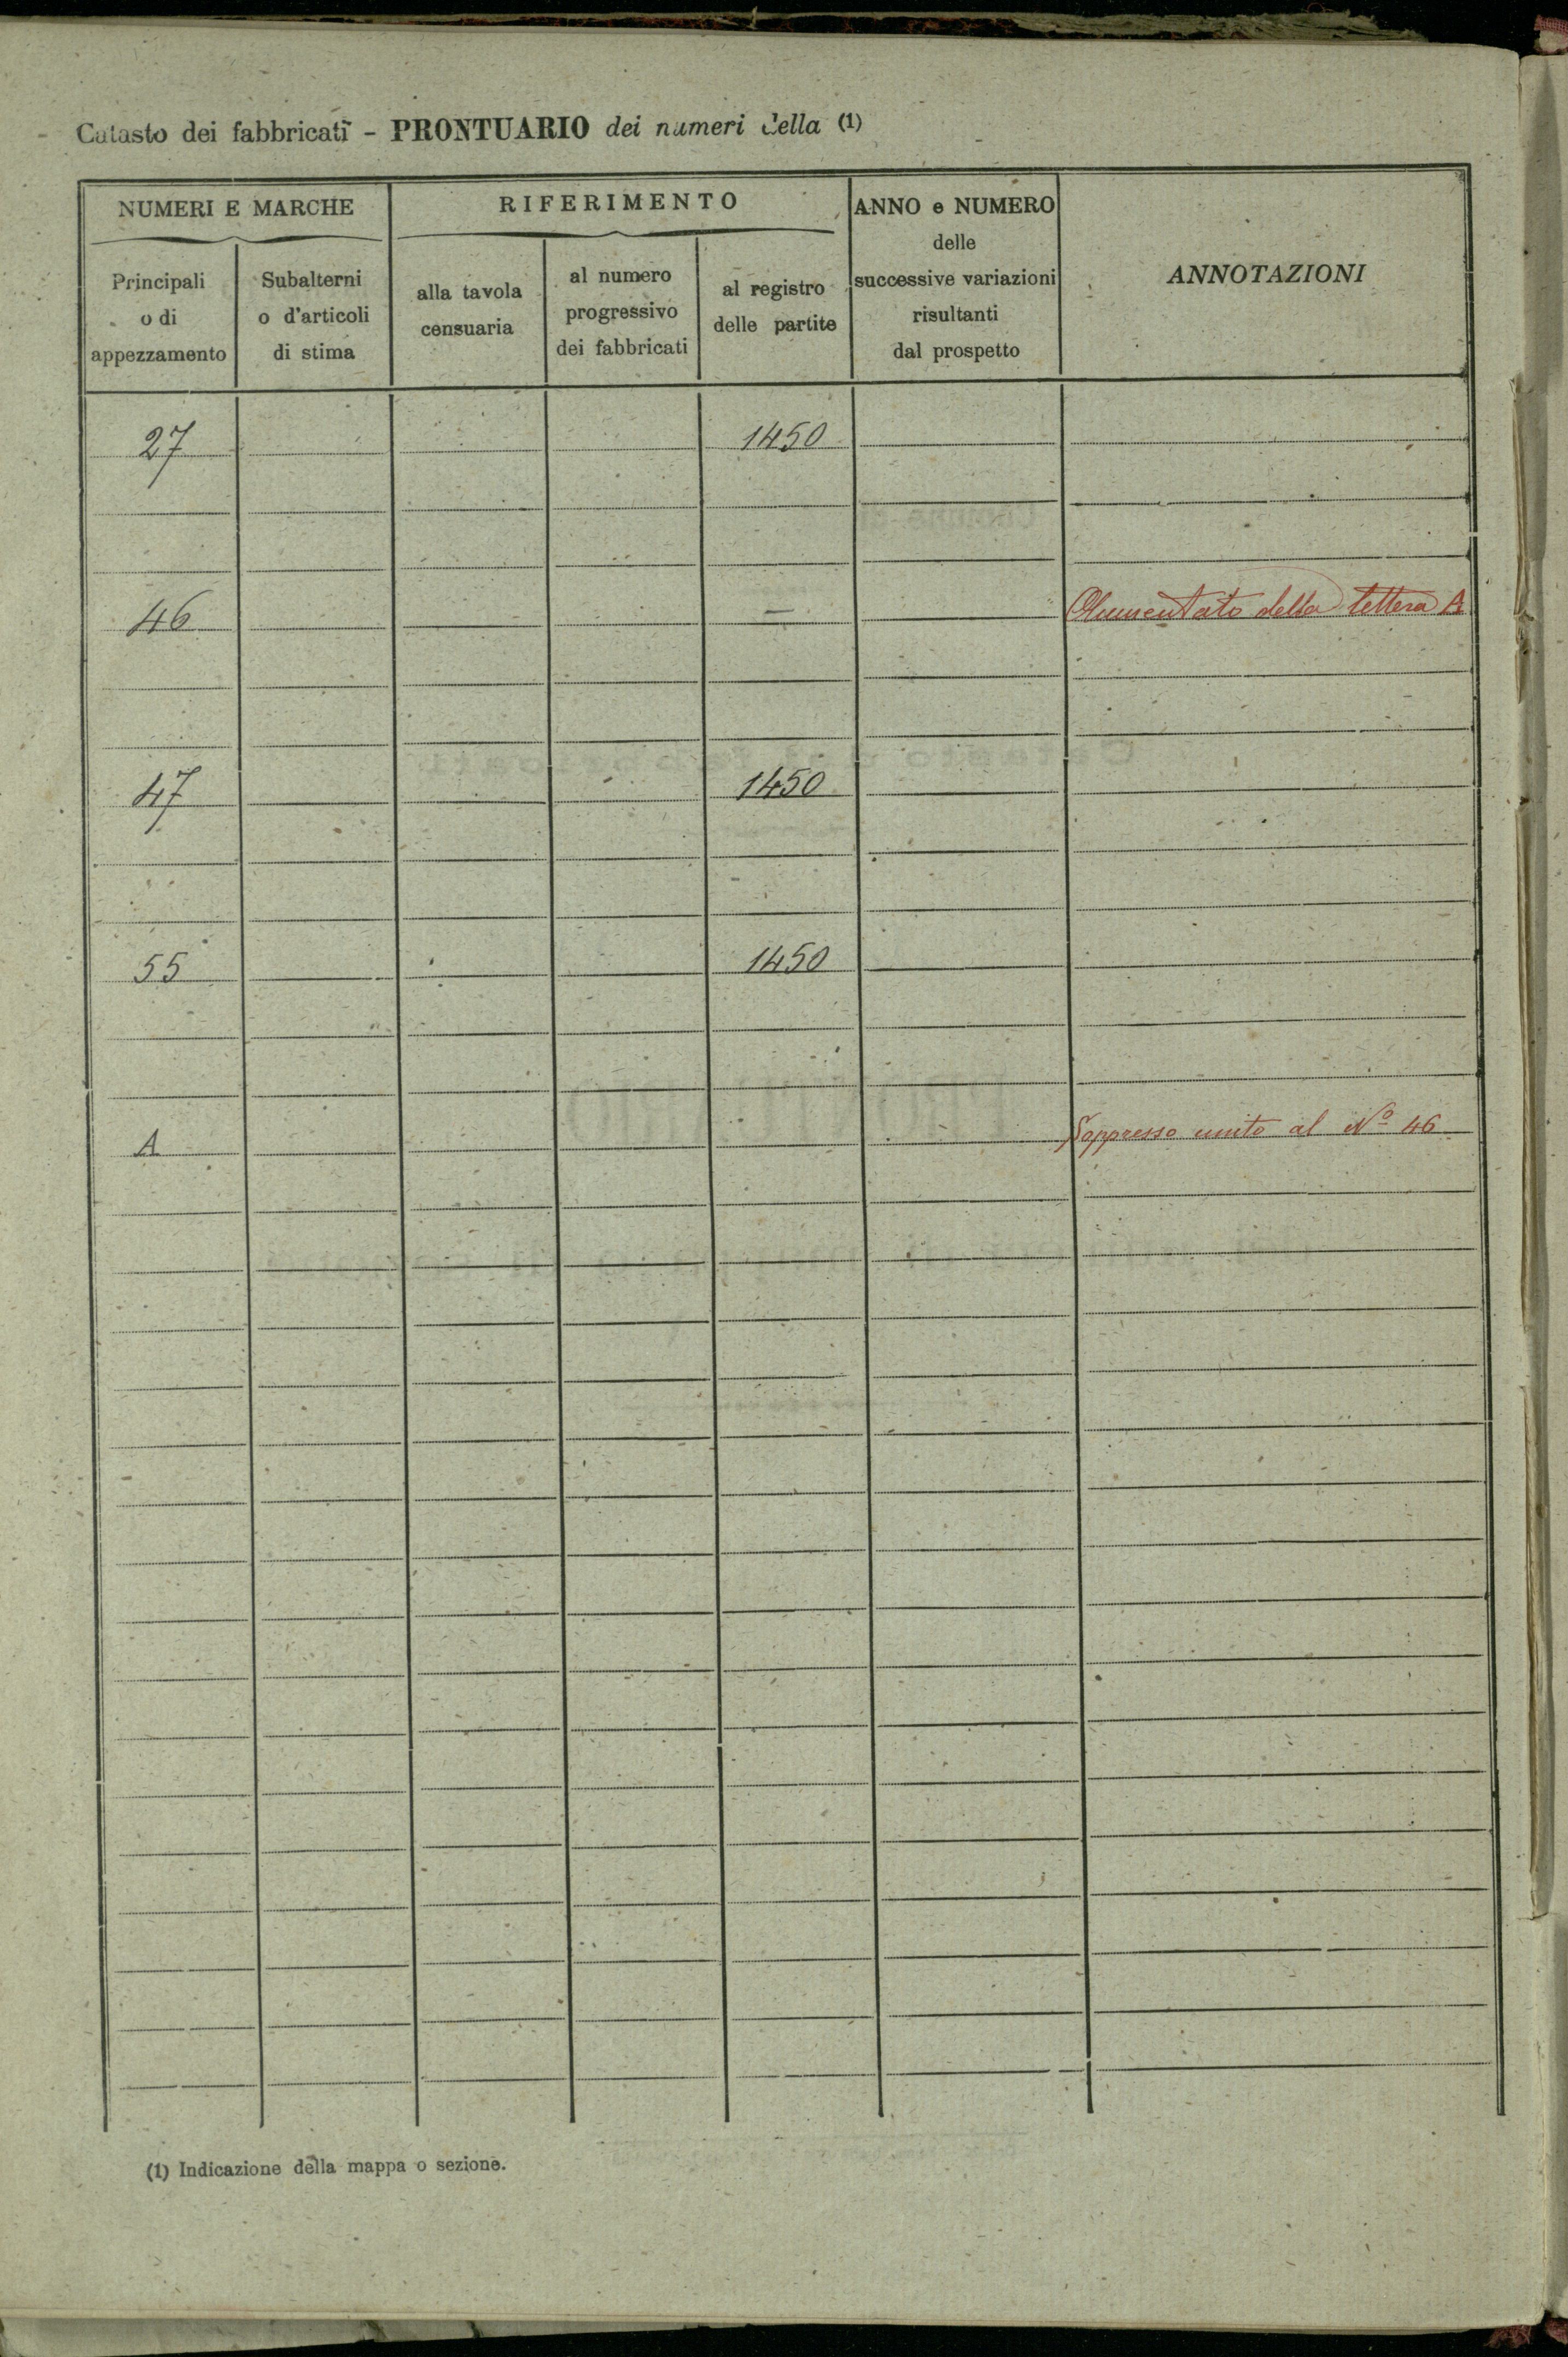 Catasto dei fabbricati - PRONTUARIO dei numeri della (1)
NUMERI E MARCHE
RIFERIMENTO
ANNO e NUMERO
delle
successive variazioni
risultanti
dal prospetto
ANNOTAZIONI
Principali
o di
appezzamento
Subalterni
o d'articoli
di stima
alla tavola
censuaria
al numero
progressivo
dei fabbricati
al registro
delle partite
27 1450
46 — Aumentato della lettera A
47 1450
55 1450
A Soppresso unito al Nº 46
(1) Indicazione della mappa o sezione.